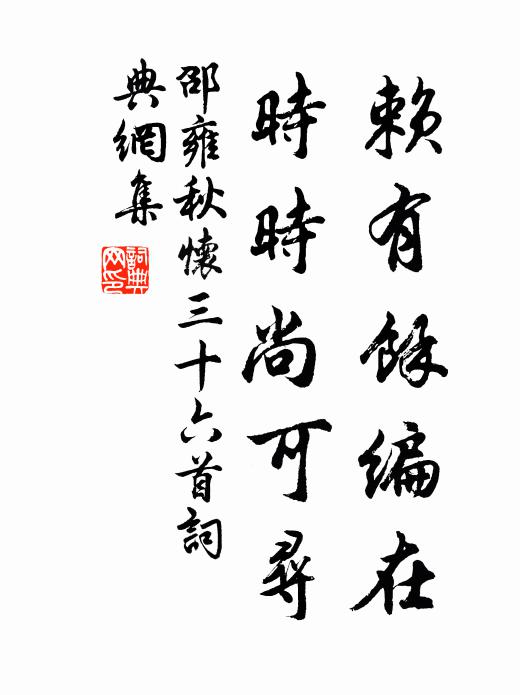 賴有餘編在
時時尚可尋
邵雍秋懷三十六首詞
典網集
詞典網印